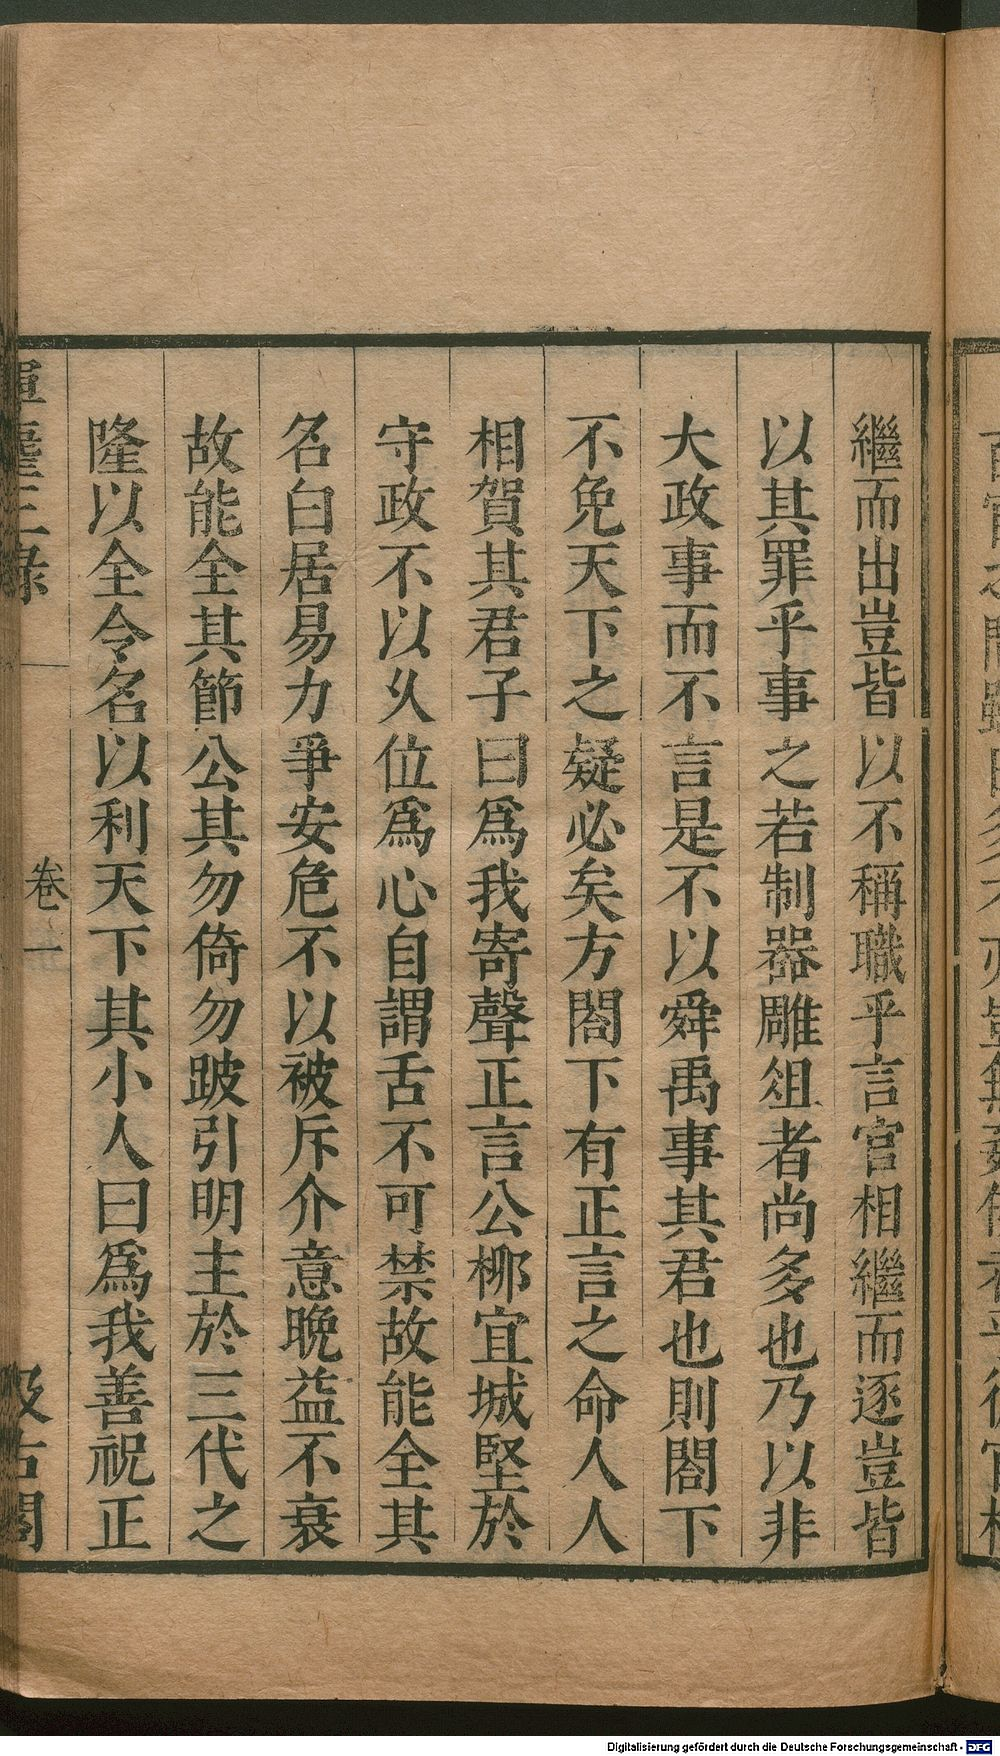 繼而出豈皆以不稱職乎言官相繼而逐豈皆
以其罪乎事之若制器雕俎者尚多也乃以非
大政事而不言是不以舜禹事其君也則閣下
不免天下之疑必矣方閣下有正言之命人人
相賀其君子曰爲我寄聲正言公栁宜城堅於
守政不以久位爲心自謂舌不可禁故能全其
名白居易力爭安危不以被斥介意晚益不衰
故能全其節公其勿倚勿跛引明主於三代之
隆以全令名以利天下其小人曰爲我善祝正
卷一
Digitalisierung gefördert durch die Deutsche Forschungsgemeinschaft - DFG